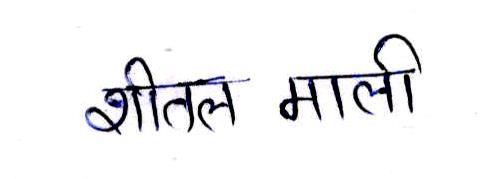 शीतल माली